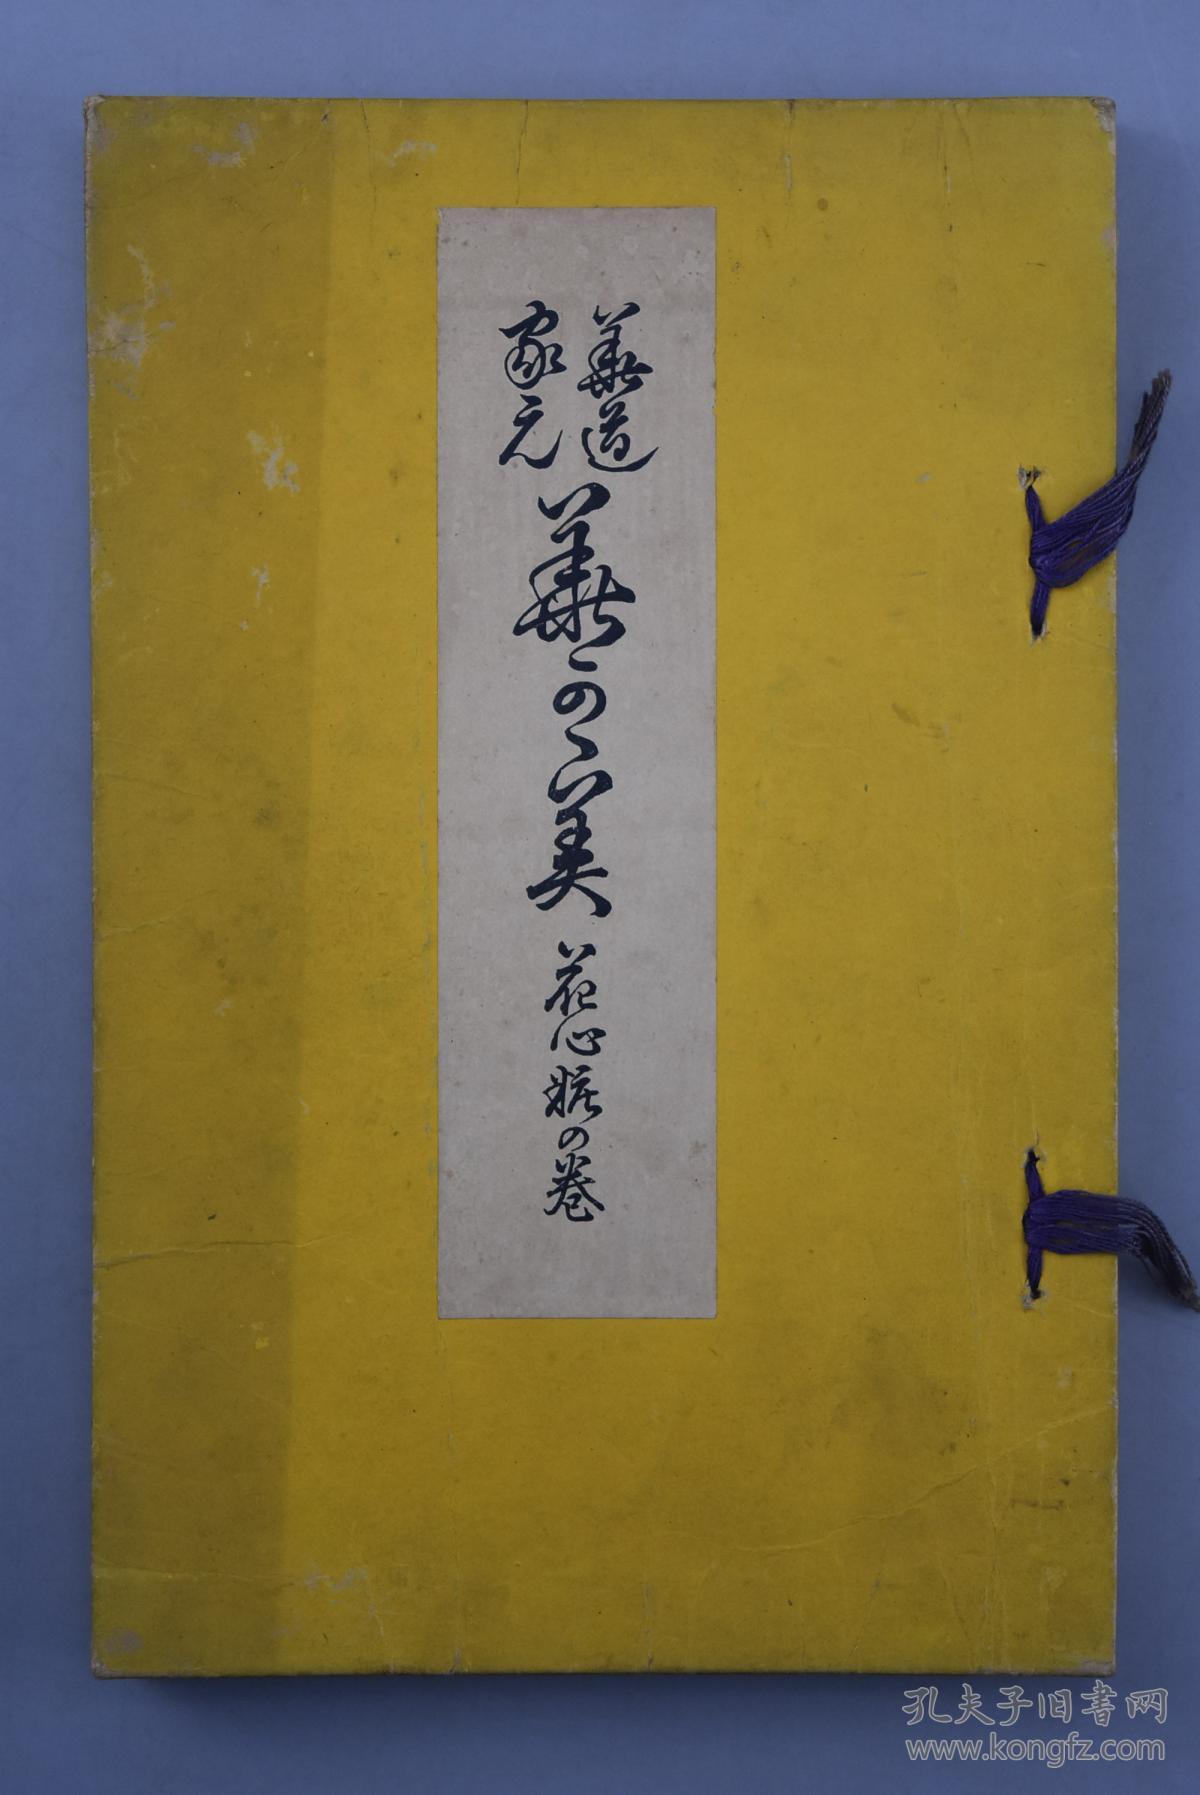 華道
家元
華かゞ美
花心粧の巻
孔夫子旧書网
www.kongfz.com